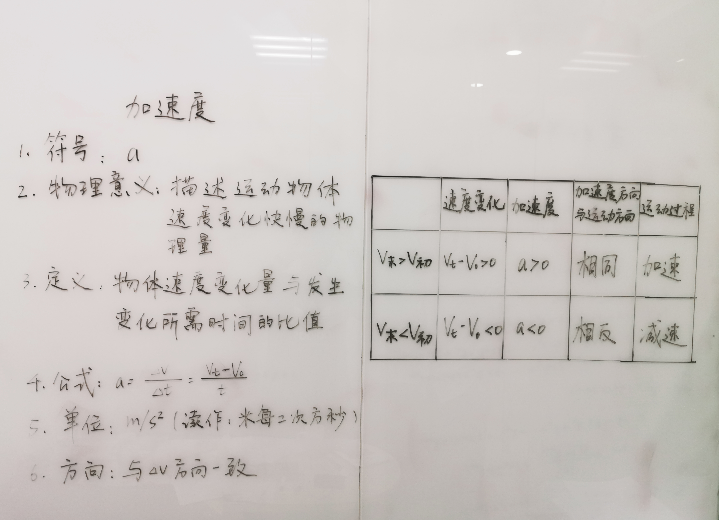 加速度
1. 符号：a
2. 物理意义：描述运动物体
速度变化快慢的物
理量
3. 定义：物体速度变化量与发生
变化所需时间的比值
4. 公式：a = △v/△t = (Vt-V0)/t
5. 单位：m/s²（读作：米每二次方秒）
6. 方向：与△v方向一致
速度变化 加速度 加速度方向与运动方向 运动过程
V末>V初 Vt-V0>0 a>0 相同 加速
V末<V初 Vt-V0<0 a<0 相反 减速